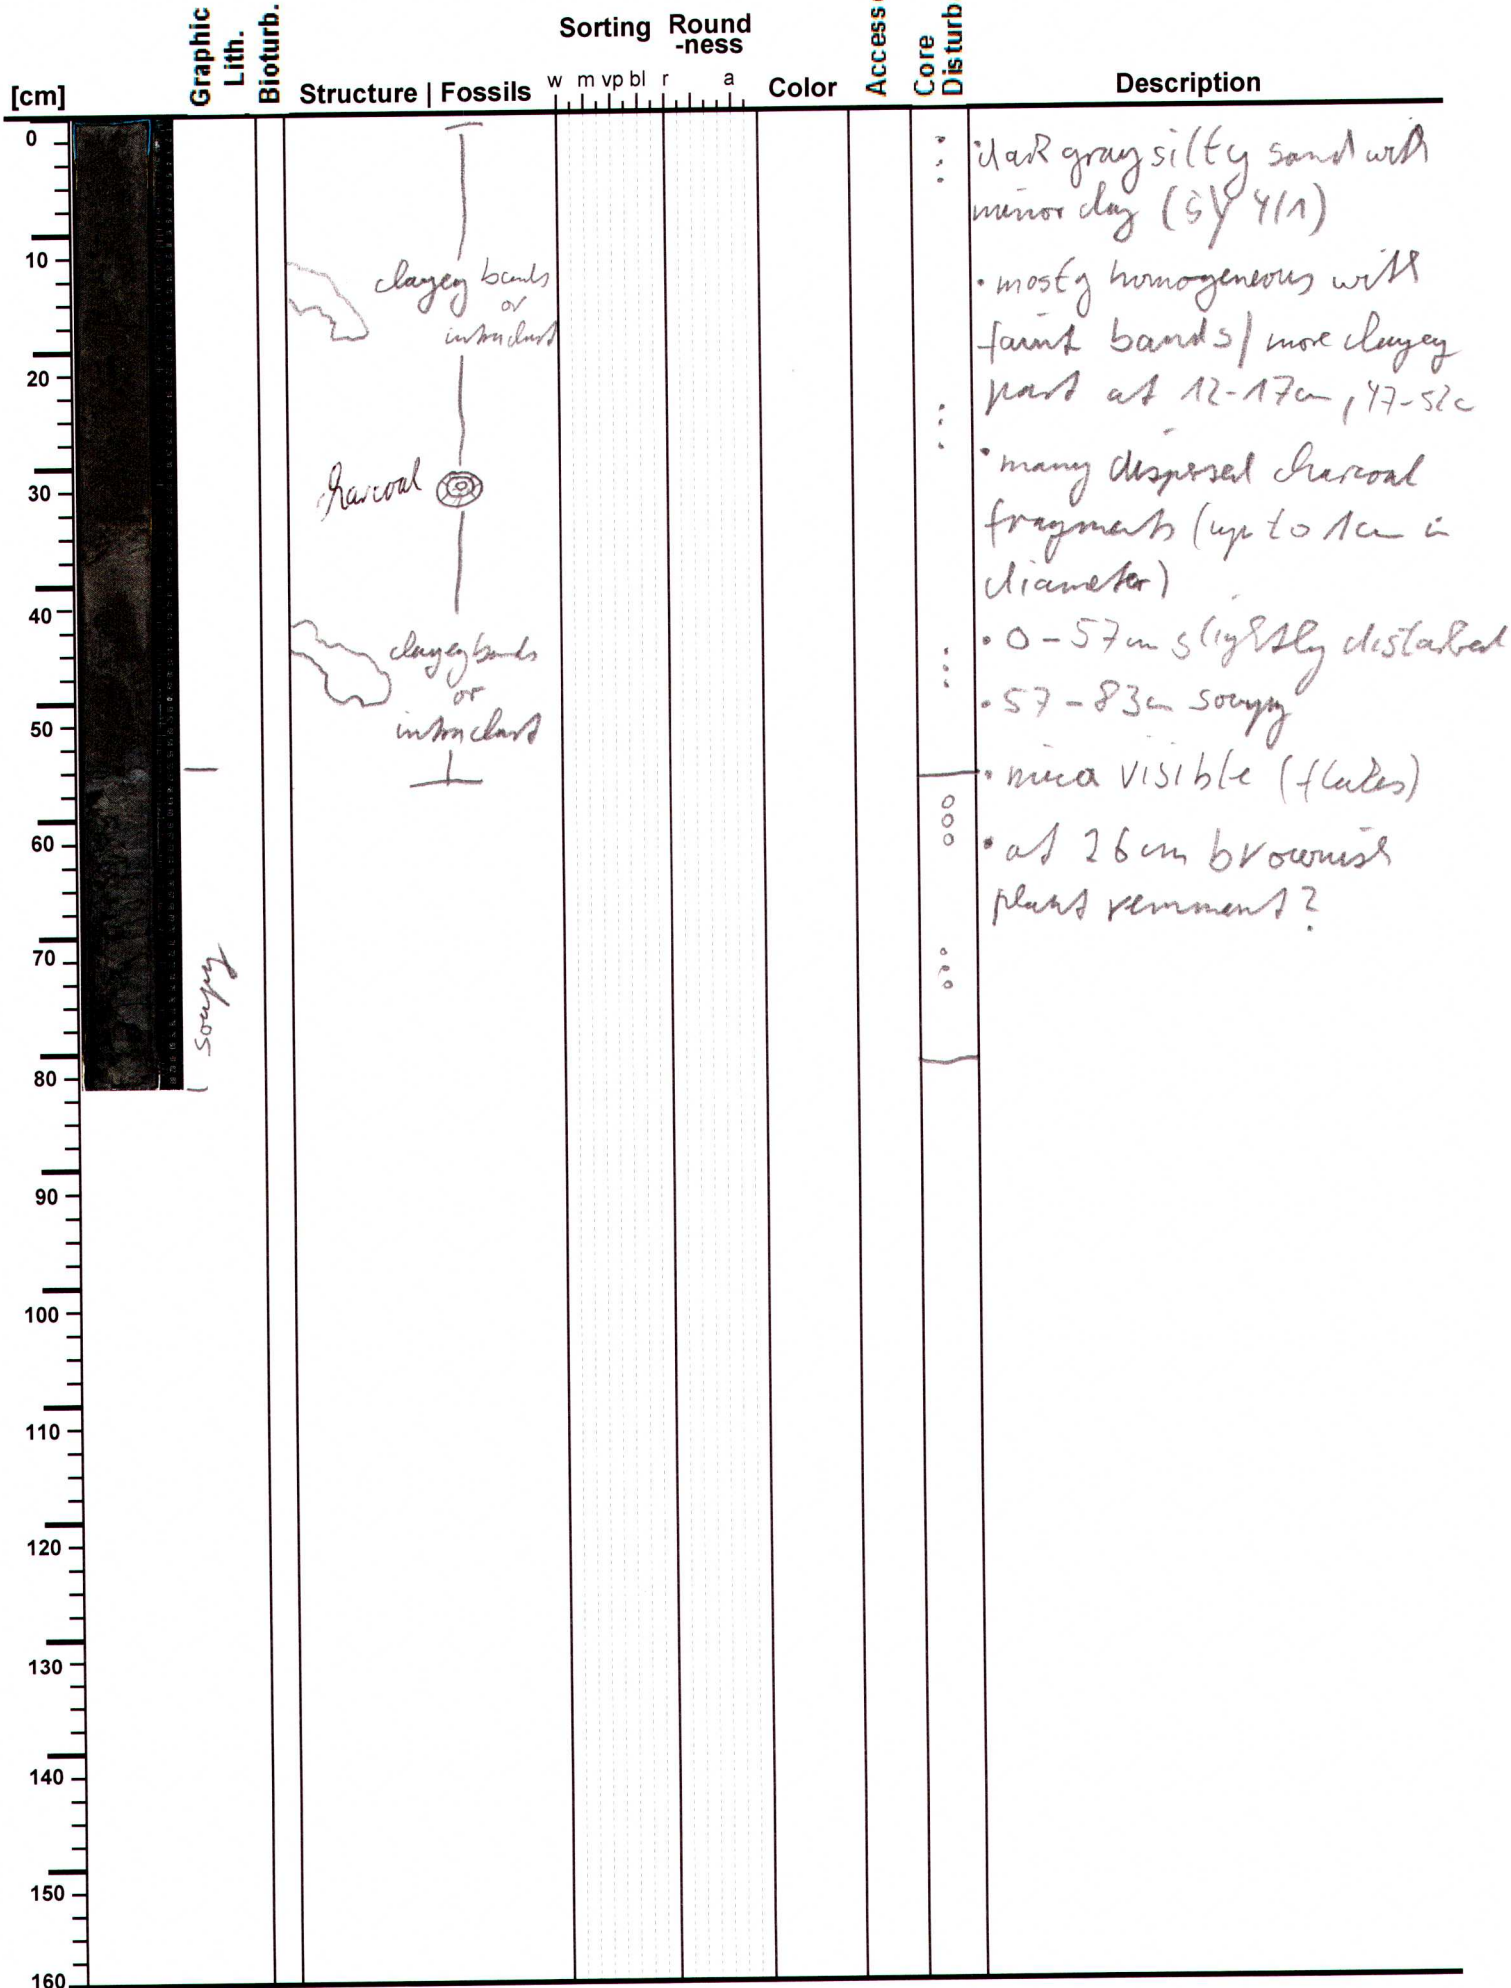 Graphic
Lith.
Bioturb.
Sorting
Round
-ness
Core
Disturb
[cm]
Structure | Fossils
w m vp bl r a
Color
Description
0
10
20
30
40
50
60
70
80
90
100
110
120
130
140
150
160
soupy
clayey bands
or
intraclast
charcoal
clayey bands
or
intraclast
• dark gray silty sand with
minor clay (5Y 4/1)
• mostly homogeneous with
faint bands / more clayey
part at 12-17cm, 47-52c
• many dispersed charcoal
fragments (up to 1cm in
diameter)
• 0-57cm slightly disturbed
• 57-83cm soupy
• mica visible (flakes)
• at 26cm brownish
plant remment?